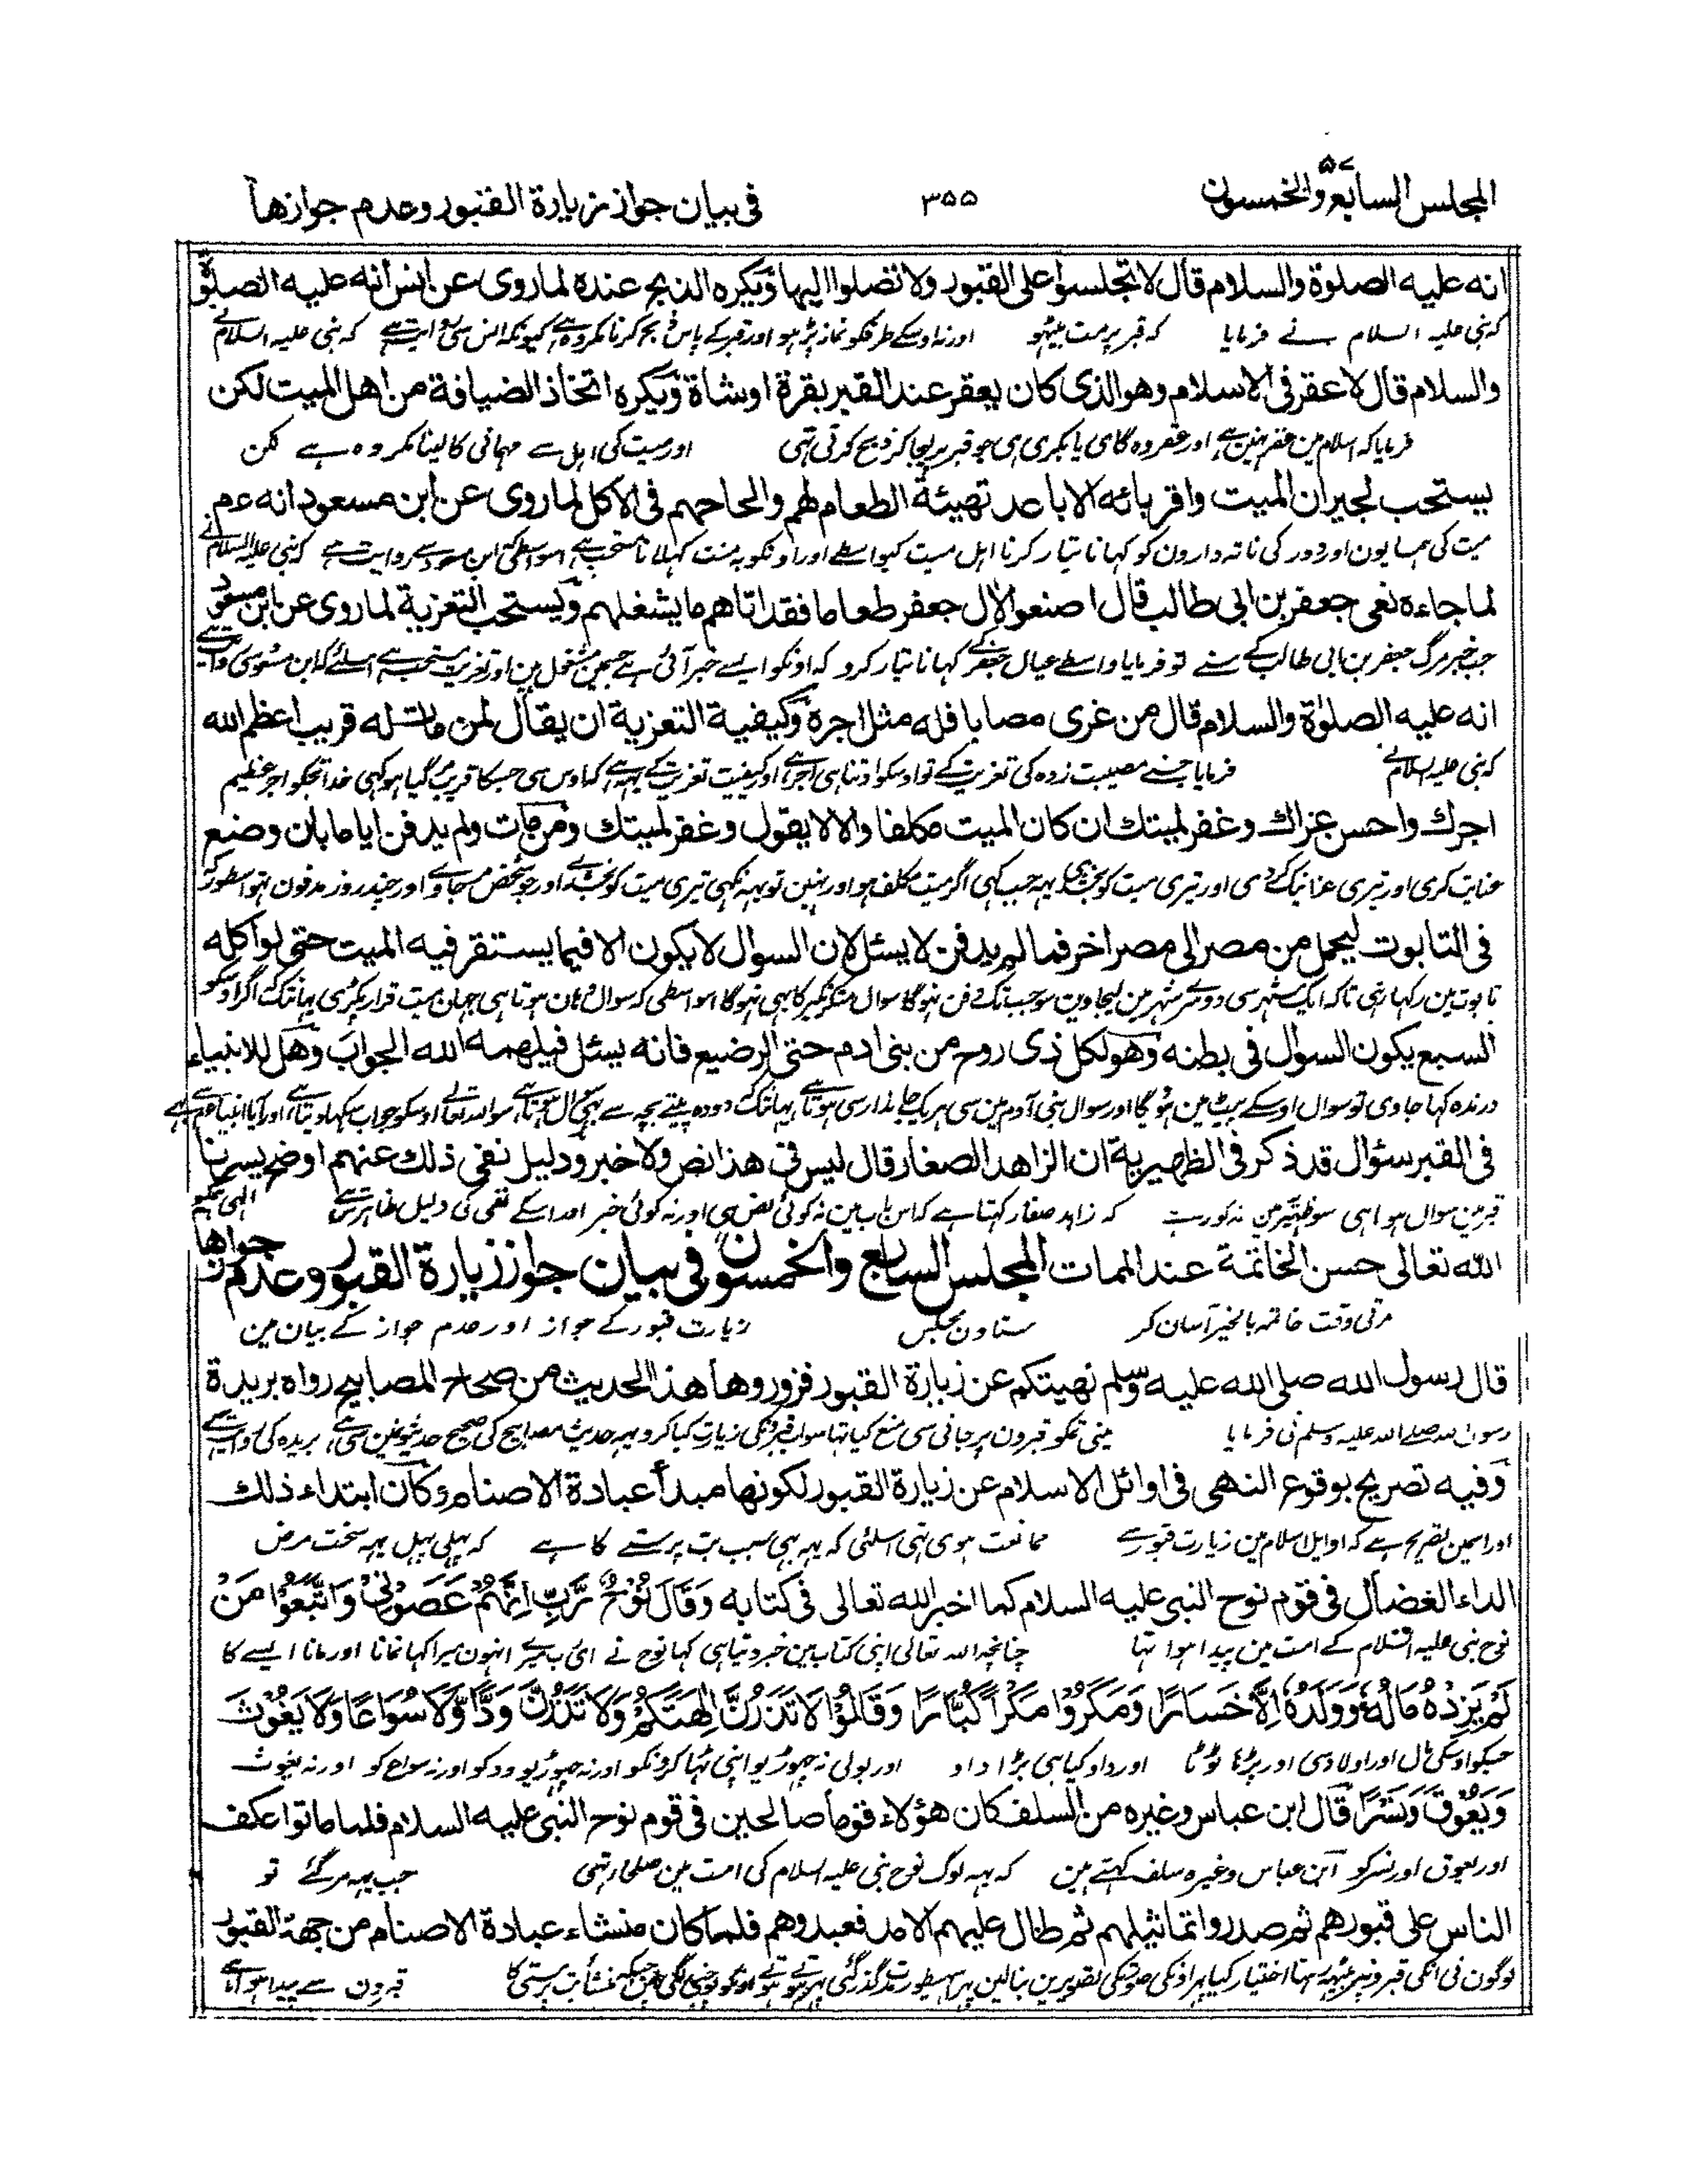 المجلس السابع والخمسون ۵۷
۳۵۵
فی بیان جواز زیارة القبور وعدم جوازها
انه علیه الصلوة والسلام قال لا تجلسوا علی القبور ولا تصلوا الیها ویکره الذبح عنده لما روی عن انس انه علیه الصلوة
کہ نبی علیہ السلام نے فرمایا کہ قبر پر مت بیٹہو اور نہ اوسکے طرفکو نماز پڑہو اور قبر کے پاس ذبح کرنا مکروہ ہے کیونکہ انس سی روایت ہے کہ نبی علیہ السلام نے
والسلام قال لا عقر فی الاسلام وهو الذی کان یعقر عند القبر بقرة او شاة ویکره اتخاذ الضیافة من اهل المیت لکن
فرمایا کہ اسلام مین عقر نہین ہے اور عقر وہ گای یا بکری ہی جو قبر پر لیجا کر ذبح کرتی تہی اور میت کی اہل سے مہمانی کا لینا مکروہ ہے لکن
یستحب لجیران المیت واقربائه الاباعد تهیئة الطعام لهم والحاحهم فی الاکل لما روی عن ابن مسعود انه عم
میت کی ہمسایون اور دور کی ناتہ دارون کو کہانا تیار کرنا اہل میت کیواسطے اور اونکو بہ منت کہلانا مستحب ہے اسواسطی کہ ابن مسعود سے روایت ہے کہ نبی علیہ السلام نے
لما جاءه نعی جعفر بن ابی طالب قال اصنعوا لال جعفر طعاما فقد اتاهم ما یشغلهم ویستحب التعزیة لما روی عن ابن مسعود
جب خبر مرگ جعفر بن ابی طالب کے سنے تو فرمایا واسطے عیال جعفر کے کہانا تیار کرو کہ اونکو ایسے خبر آئی ہے جسمین مشغول ہین اور تعزیت مستحب ہے اسلئے کہ ابن مسعود سی روایت ہے
انه علیه الصلوٰة والسلام قال من عزی مصابا فله مثل اجره وکیفیة التعزیة ان یقال لمن مات له قریب اعظم الله
کہ نبی علیہ السلام نے فرمایا جسنے مصیبت زدہ کی تعزیت کے تو اوسکو اوتنا ہی اجر ہے اور کیفیت تعزیت کے یہہ ہے کہ اوس سی جسکا قریب مر گیا ہو کہی خدا تجکو اجر عظیم
اجرک واحسن عزاک وغفر لمیتک ان کان المیت مکلفا والا لا یقول وغفر لمیتک ومن مات ولم یدفن ایاما بان وضع
عنایت کری اور تیری عزا نیک کردی اور تیری میت کو بخشدی یہہ جب کہی اگر میت مکلف ہو اور نہین تو یہہ نکہی تیری میت کو بخشدے اور جو شخص مر جاوے اور چند روز مدفون نہو اسطور کہ
فی التابوت لیحمل من مصر الی مصر اخر فما لم یدفن لا یسئل لان السوال لا یکون الا فیما یستقر فیه المیت حتی لو اکله
تابوت مین رکہا رہی تا کہ ایک شہر سی دوسرے شہر مین لیجاوین سو جب تک دفن نہوگا سوال منکر نکیر کا بہی نہوگا اسواسطی کہ سوال وہان ہوتا ہی جہان میت قرار پکڑی یہانتک کہ اگر اوسکو
السبع یکون السوال فی بطنه وهو لکل ذی روح من بنی ادم حتی الرضیع فانه یسئل فیلهمه الله الجواب وهل للانبیاء
درندہ کہا جاوی تو سوال اوسکے پیٹ مین ہوگا اور سوال بنی آدم مین سی ہریک جاندار سی ہوتا ہے یہانتک دودہ پیتے بچہ سے بہی سوال ہوتا ہے سو اللہ تعالے اوسکو جواب سکہا دیتا ہے اور آیا انبیا سے
فی القبر سؤال قد ذکر فی الظهیریة ان الزاهد الصفار قال لیس فی هذا نص ولا خبر ودلیل نفی ذلک عنهم اوضح یسرنا
قبر مین سوال ہوا ہی سو ظہیریہ مین مذکور ہے کہ زاہد صفار کہتا ہے کہ اس باب مین نہ کوئی نص ہی اور نہ کوئی خبر اور اسکے نفی کی دلیل ظاہر تر ہے الہی ہمکو
الله تعالی حسن الخاتمة عند الممات المجلس السابع والخمسون فی بیان جواز زیارة القبور وعدم جوازها
مرتی وقت خاتمہ بالخیر آسان کر ستاون مجلس زیارت قبور کے جواز اور عدم جواز کے بیان مین
قال رسول الله صلی الله علیه وسلم نهیتکم عن زیارة القبور فزوروها هذا الحدیث من صحاح المصابیح رواه بریدة
رسول اللہ صلے اللہ علیہ وسلم نی فرمایا مینی تمکو قبرون پر جانی سی منع کیا تہا سو اب قبرونکی زیارت کیا کرو یہہ حدیث مصابیح کی صحیح حدیثونمین سی ہے بریدہ کی روایت سے
وفیه تصریح بوقوع النهی فی اوائل الاسلام عن زیارة القبور لکونها مبدأ عبادة الاصنام وکان ابتداء ذلک
اور اسمین تصریح ہے کہ اوایل اسلام مین زیارت قبور سے ممانعت ہوی تہی اسلئی کہ یہہ ہی سبب بت پرستے کا ہے کہ پہلی پہل یہہ سخت مرض
الداء العضال فی قوم نوح النبی علیه السلام کما اخبر الله تعالی فی کتابه وَقَالَ نُوْحٌ رَّبِّ اِنَّهُمْ عَصَوْنِیْ وَاتَّبَعُوْا مَنْ
نوح نبی علیہ السلام کے امت مین پیدا ہوا تہا چنانچہ اللہ تعالی اپنی کتاب مین خبر دیتا ہی کہا نوح نے ای رب میرے انہون میرا کہا نمانا اور مانا ایسے کا
لَمْ یَزِدْهُ مَالُهُ وَوَلَدُهُ اِلَّا خَسَارًا وَمَکَرُوْا مَکْرًا کُبَّارًا وَقَالُوْا لَا تَذَرُنَّ اٰلِهَتَکُمْ وَلَا تَذَرُنَّ وَدًّا وَّلَا سُوَاعًا وَلَا یَغُوْثَ
جسکو اوسکی مال اور اولاد سی اور بڑہا ٹوٹا اور داو کیا ہی بڑا داو اور بولی نہ چہوڑیو اپنی ٹہاکرونکو اور نہ چہوڑیو ود کو اور نہ سواع کو اور نہ یغوث
وَیَعُوْقَ وَنَسْرًا قال ابن عباس وغیره من السلف کان هؤلاء قوما صالحین فی قوم نوح النبی علیه السلام فلما ماتوا عکف
اور یعوق اور نسر کو ابن عباس وغیرہ سلف کہتے ہین کہ یہہ لوگ نوح نبی علیہ السلام کی امت مین صلحا رتہی جب یہہ مر گئے تو
الناس علی قبورهم ثم صوروا تماثیلهم ثم طال علیهم الامد فعبدوهم فلما کان منشاء عبادة الاصنام من جهة القبور
لوگون نی انکی قبرونپر بیٹہہ رہنا اختیار کیا پہر اونکی صورتکی تصویرین بنالین پہر اسیطور مدت گذر گئی پہر ہوتے ہوتے اونکو پوجنی لگی پس جبکہ منشأ بت پرستی کا قبرون سے پیدا ہوا ہے